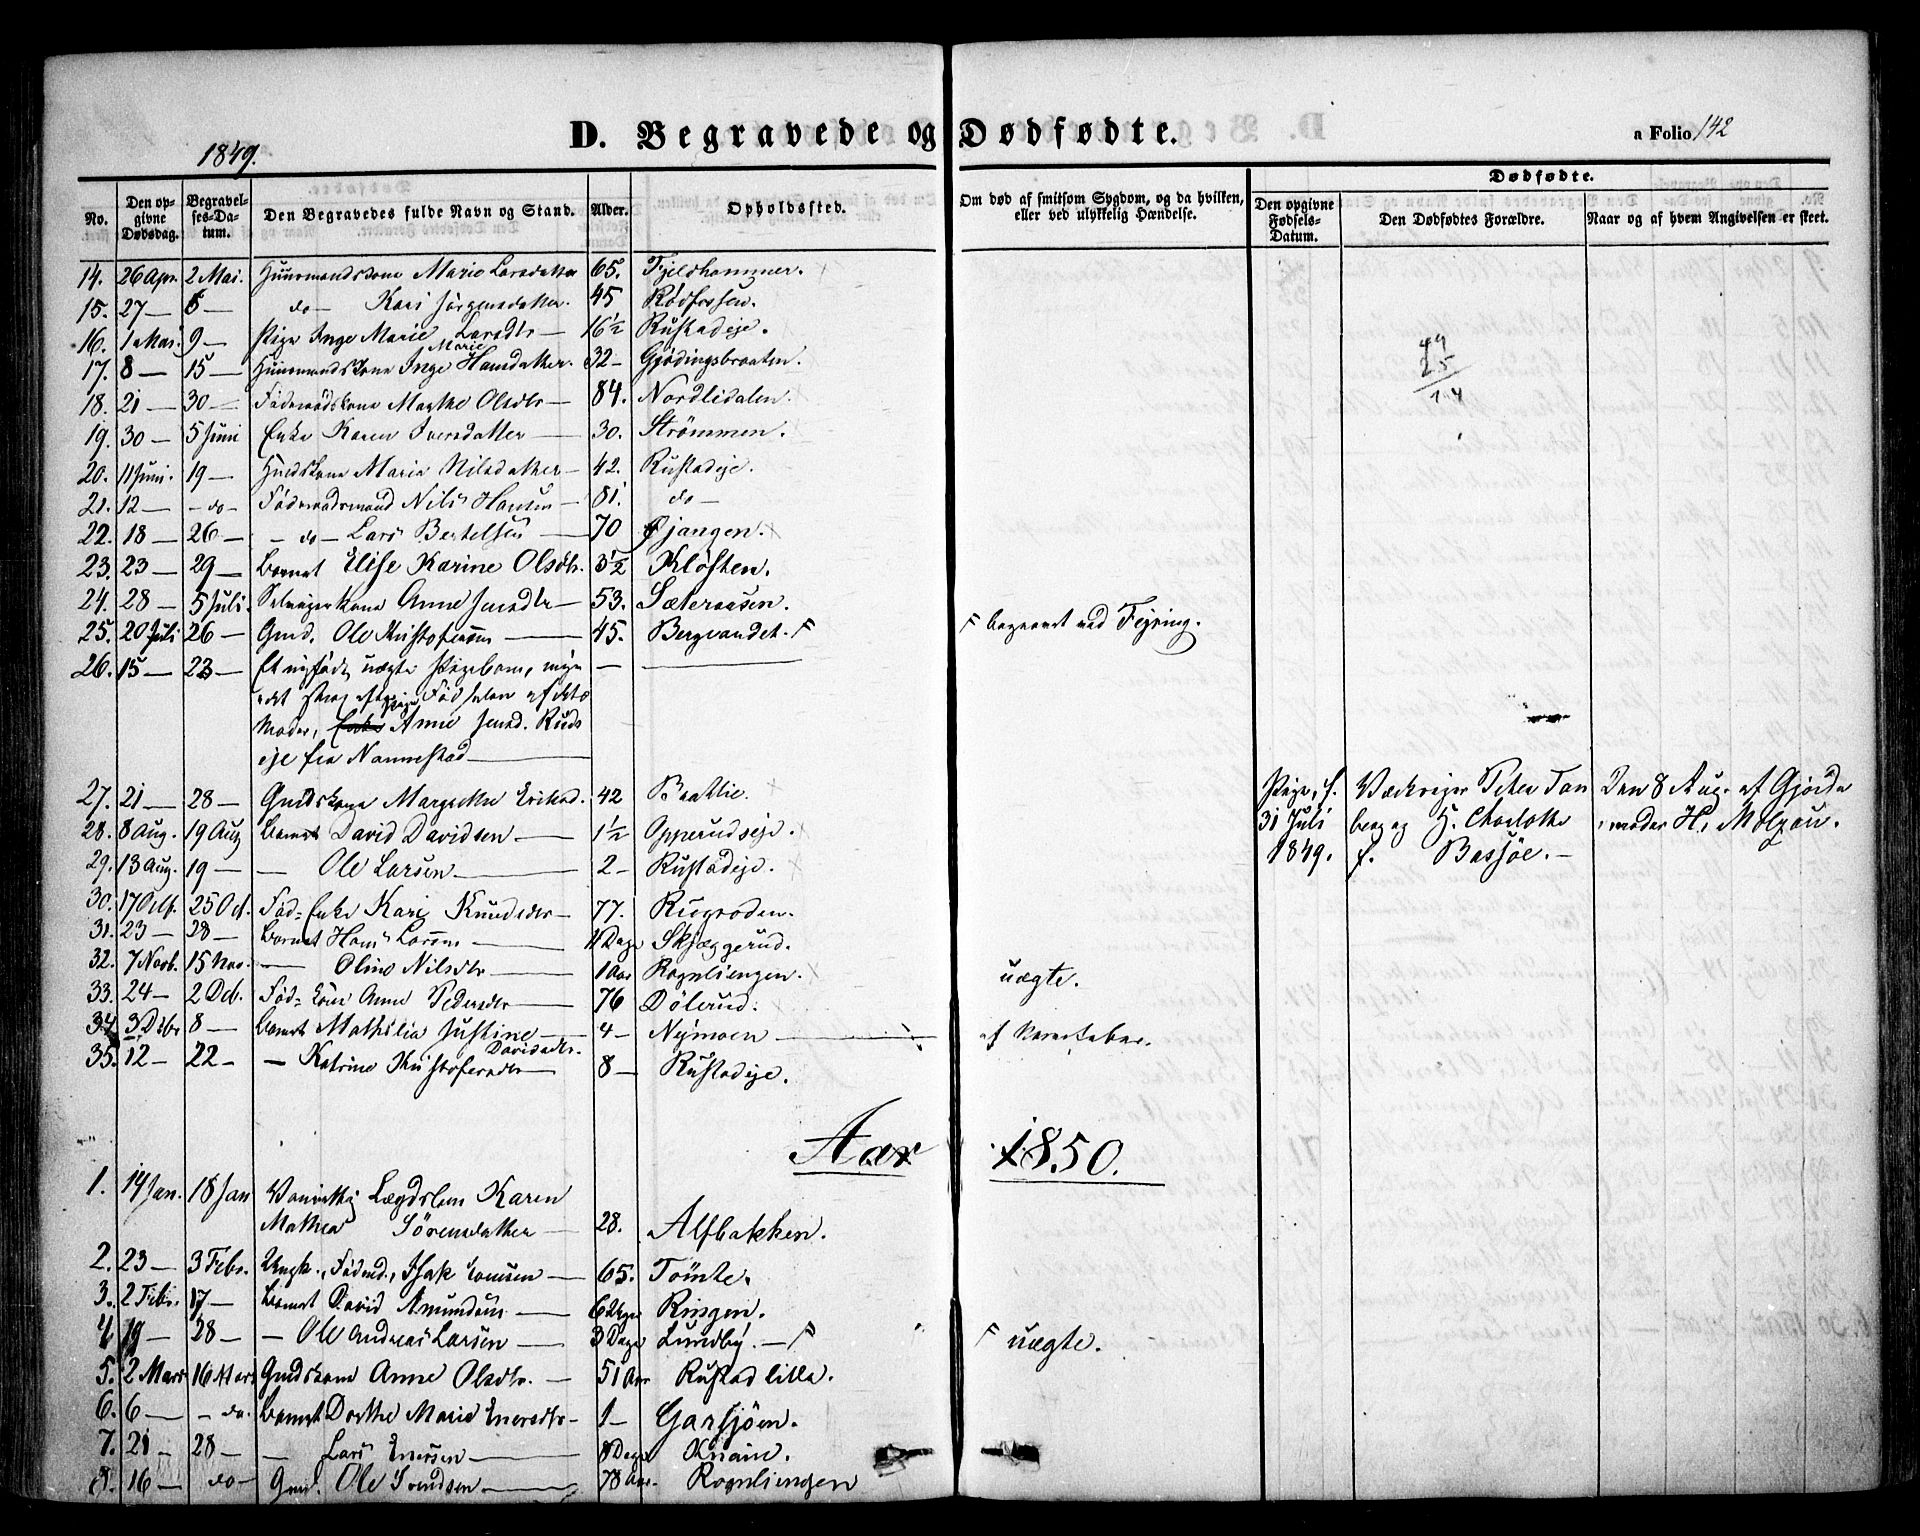 1849.
D. Begravede og Dødfødte.
a Folio 142
No.
Den opgivne Dødsdag.
Begravelses-Datum.
Den Begravedes fulde Navn og Stand.
Alder.
Opholdssted.
Om død af smitsom Sygdom, og da hvilken, eller ved ulykkelig Hændelse.
Dødfødte.
Den opgivne Fødsels-Datum.
Den Dødfødtes Forældre.
Naar og af hvem Angivelsen er skeet.
14. 26 Apr. 2 Mai. Huusmandskone Marie Larsdatter 65. Fjeldhammer.
15. 27 — 5 — do — Kari Jørgensdatter. 45 Rødfossen.
16. 1 Mai 9 — Pige Inge Marie Larsdtr — 16½ Rustadeje.
17. 8 — 15 — Huusmandskone Inge Marie Hansdatter. 32 — Gjødingsbraaten.
18. 21 — 30 — Føderaadskone Marthe Olsdtr — 84. Nordlidalen.
19. 30 — 5 Juni Enke Karen Iversdatter — 30. Strømmen.
20. 11 Juni. 19 — Gmdskone Marie Nilsdatter — 42. Rustadeje.
21. 12 — - do - Føderaadsmand Nils Hansen — 81. do —
22. 18 — 26 — - do - Lars Bertelsen — 70 Øjangen.
23. 23 — 29 — Barnet Elise Karine Olsdtr. 3½ Kløften.
24. 28 — 5 Juli. Selvejerkone Anne Jensdtr — 53. Sæteraasen.
25. 20 Juli 26 — Gmd. Ole Kristofersen — 45. Bergvandet. F
F begravet ved Fejring.
26. 15 — 23 — Et nyfødt uægte Pigebarn,
strax efter Fødselen af dets
Moder, Enke Anne Jensd. Ruds
eje fra Nannestad —
27. 21 — 28 — Gmdskone Margrethe Eriksd. 42 Baatlie.
28. 8 Aug. 19 Aug Barnet David Davidsen — 1½ Opperudseje.
29. 13 Aug. 19 — — Ole Larsen — 2 — Rustadeje.
Pige, f. 31 Juli 1849.
Peter Tanberg og H. Charlotte f. Bassøe. —
Den 8 Aug. af Gjordemoder H. Molzau.
30. 17 Oct. 25 Oct. Fød-Enke Kari Knudsdtr — 77. Rugroden.
31. 23 — 28 — Barnet Hans Larsen — 11 Dage Skjæggerud.
32. 7 Novb. 15 Nov. — Oline Nilsdtr — 1 Aar Rognliengen. uægte.
33. 24 — 2 Deb. Fød-kone Anne Pedersdtr — 76 Dølerud.
34 3 Dbr 8 — Barnet Mathilia Justine Davidsdtr. — 4 — Nymoen —
35. 12 — 22 — — Katrine Kristofersdtr — 8 — Rustadeje.
Aar 1850.
1. 14 Jan. 18 Jan Lægdslem Karen
Mathea Sørensdatter — 28. Alfbakken.
2. 23 — 3 Febr. Ungk., Fødmd., Isak — 65. Tømte.
3. 2 Febr. 17 — Barnet David Amundsen — 6 Uger Ringen.
4 19 — 28 — — Ole Andreas Larsen — 3 Dage Lundby. — F
F uægte.
5. 2 Mars 16 Mars Gmdskone Anne Olsdtr. — 51 Aar Rustad lille.
6. 6 — - do. Barnet Dorthe Marie Enersdtr — 1 — Garsjøen.
7. 21 — 28 — — Lars Enersen — 8 Dage Knain.
8. 16 — do — Gmd. Ole Svendsen — 78 Aar. Rognliengen